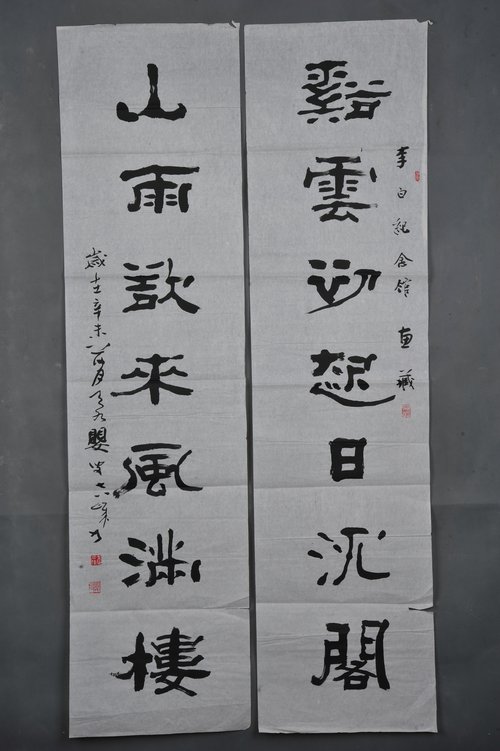 谿雲初起日沉閣
李白紀念館 惠藏
山雨欲來風滿樓
歲在辛未